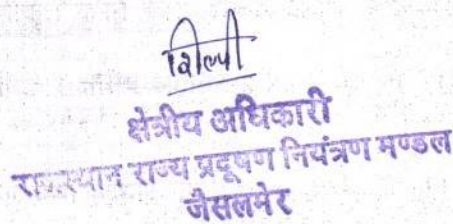 शिल्पी
क्षेत्रीय अधिकारी
राजस्थान राज्य प्रदूषण नियंत्रण मण्डल
जैसलमेर